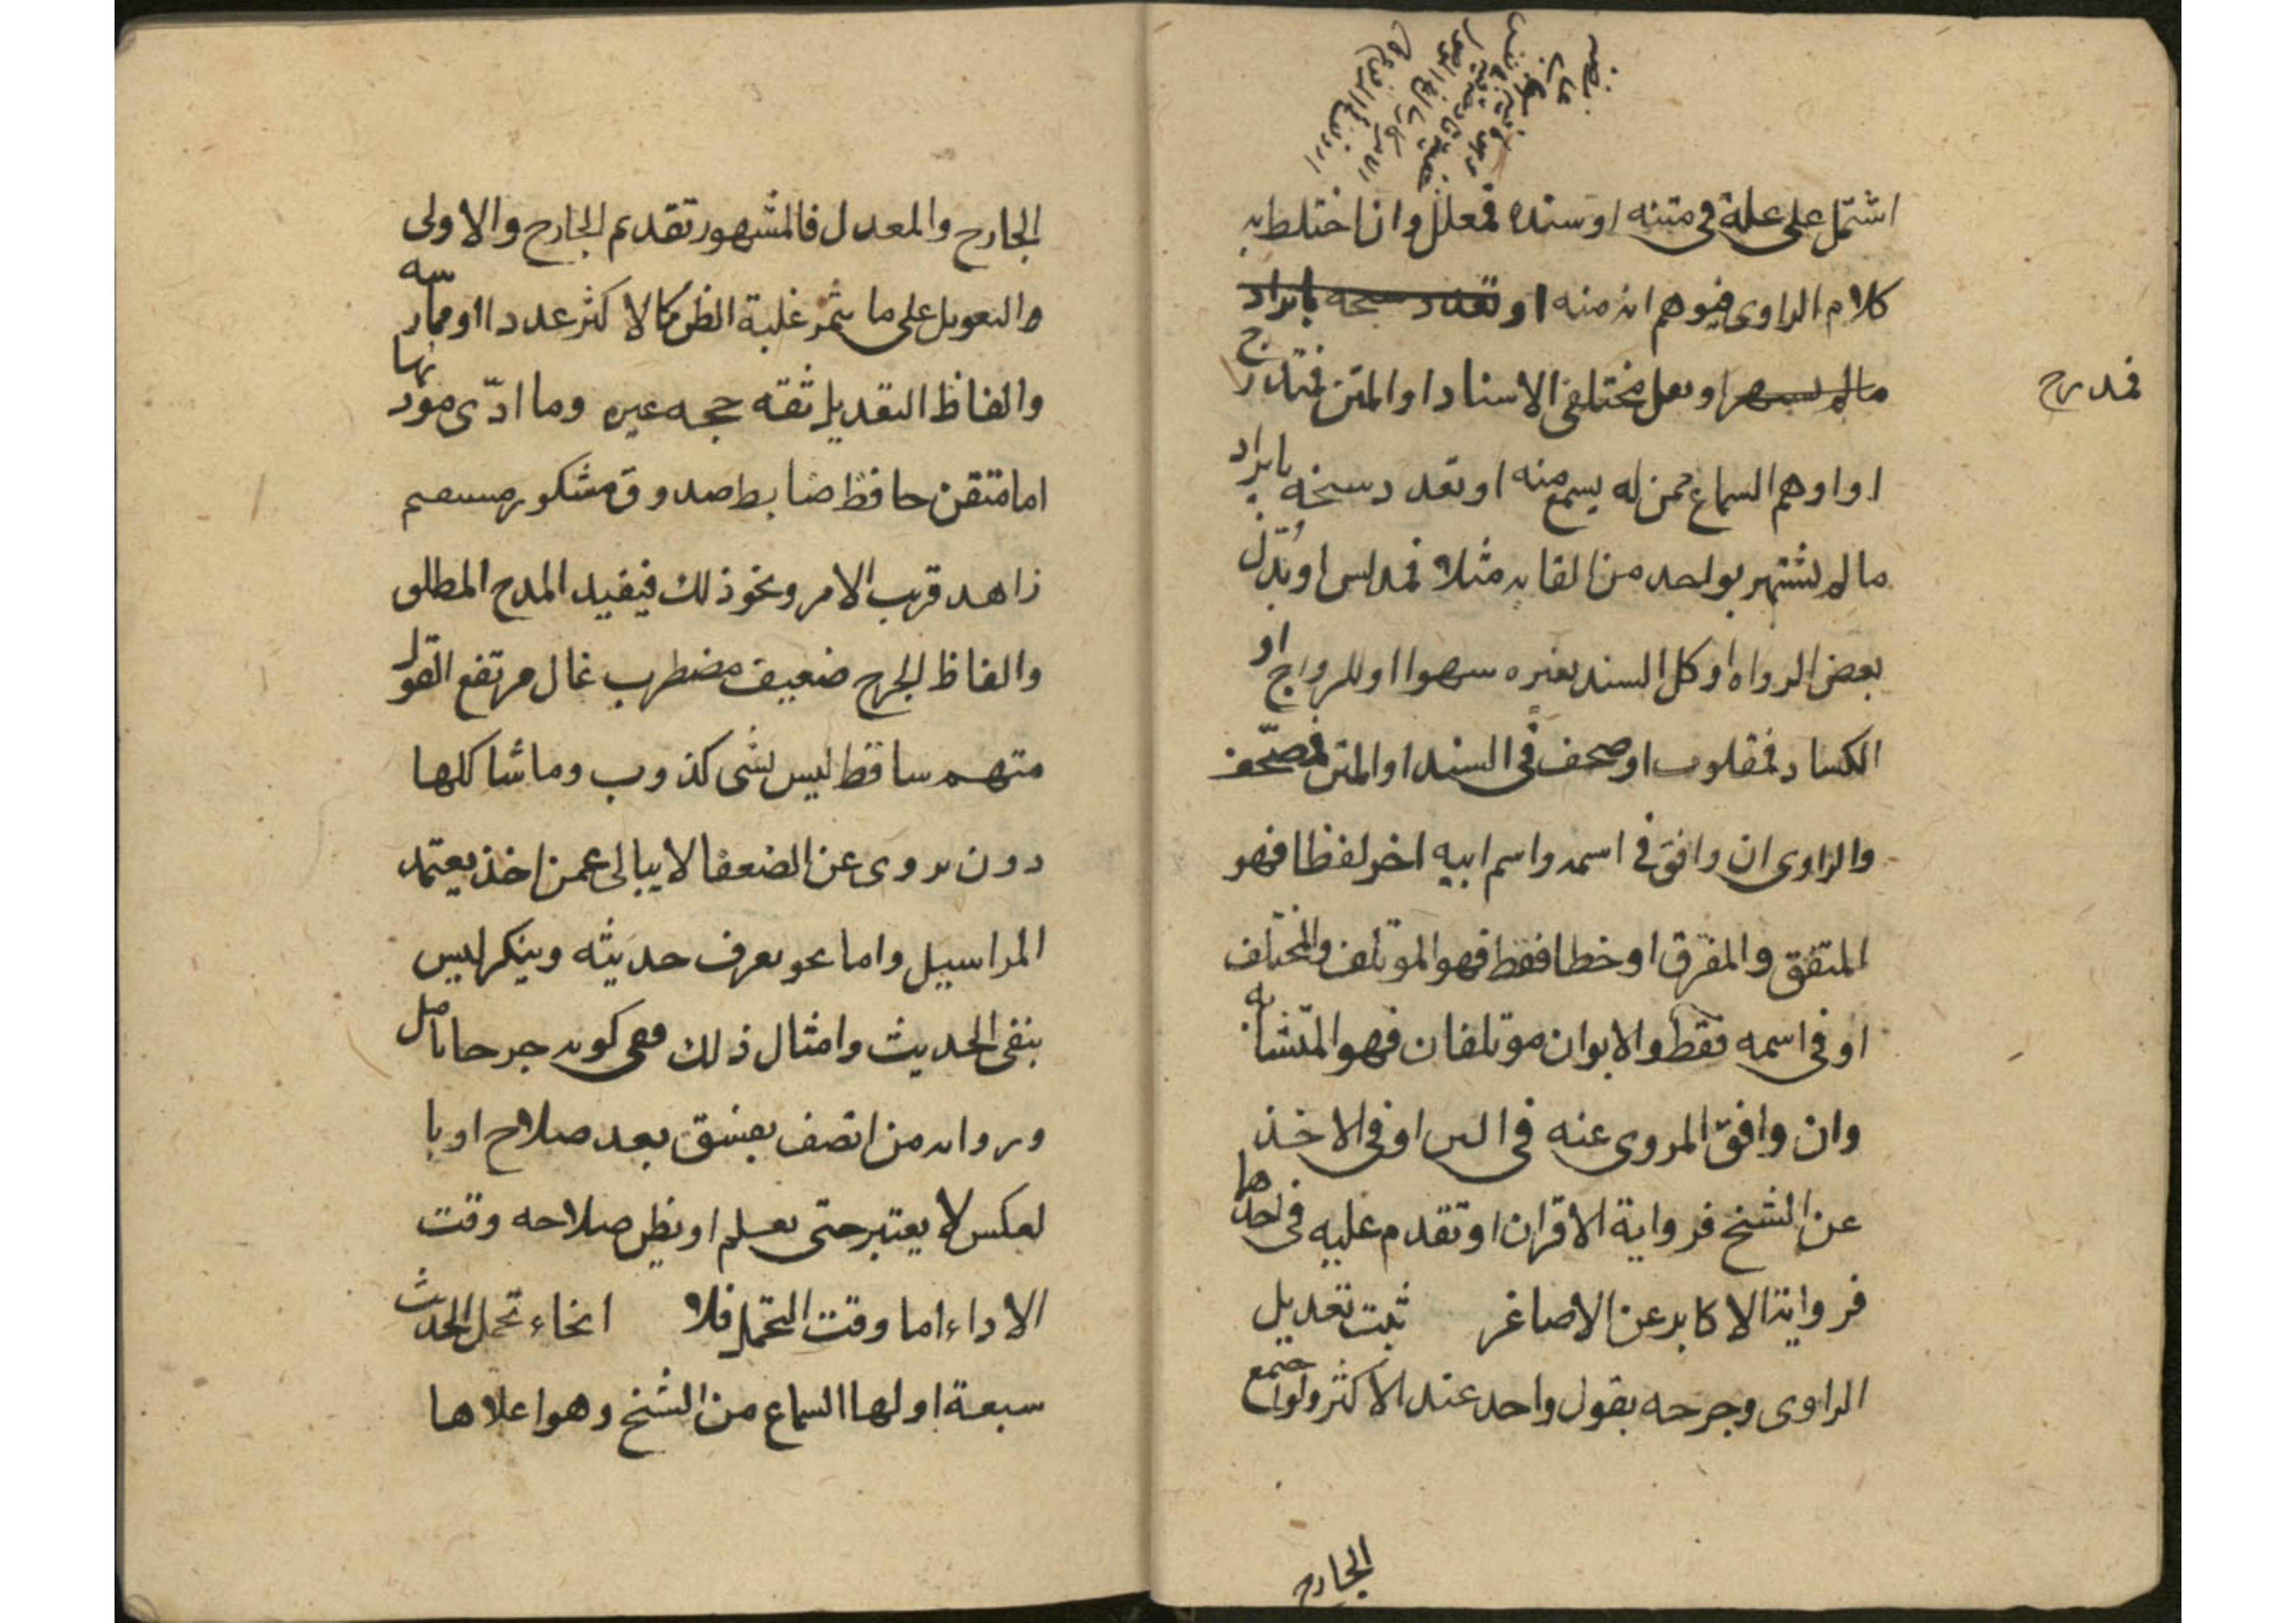 اشتمل على علة في متنه او سنده فمعلل وان اختلط به
كلام الراوى فيوهم انه منه او تعدد سحه بايراد
مالم يسهر او نعل مختلفى الاسناد او المتن فمدرج
فمدرج
او اوهم السماع ممن لم يسمع منه او تعدد سخه بايراد
مالم يشتهر بواحد من القابه مثلا فمدلس او بُدّل
بعض الرواه او كل السند بغيره سهوا او للرواج او
الكساد فمقلوب او صحف في السند او المتن فمصّحف
والراوى ان وافق في اسمه واسم ابيه اخر لفظا فهو
المتفق والمفرق او خطا فقط فهو الموتلف والمختلف
او في اسمه فقط والابوان موتلفان فهو المتشابه
وان وافق المروى عنه في السن او في الاخذ
عن الشيخ فرواية الاقران او تقدم عليه في احدها
فرواية الاكابر عن الاصاغر ثبت تعديل
الراوى وجرحه بقول واحد عند الاكثر ولو اجتمع
الجارح
الجارح والمعدل فالمشهور تقديم الجارح والاولى
والتعويل على ما يثمر غلبة الظن كالاكثر عددا او ممارسه
والفاظ التعديل ثقه حجه عين وما ادّى مودّ نها
اما متقن حافظ ضابط صدوق مشكور مستقيم
زاهد قرب الامر ونحو ذلك فيفيد المدح المطلق
والفاظ الجرح ضعيف مضطرب غال مرتفع القول
متهم ساقط ليس بشى كذوب وما شاكلها
دون يروى عن الضعفا لا يبالى عمن اخذ يعتمد
المراسيل واما نحو يعرف حديثه وينكر ليس
بنقى الحديث وامثال ذلك ففى كونه جرحا تامل
وروايه من اتصف بفسق بعد صلاح او با
لعكس لا يعتبر حتى يعلم او يظن صلاحه وقت
الاداء اما وقت التحمل فلا انحاء تحمل الحديث
سبعة اولها السماع من الشيخ وهو اعلاها